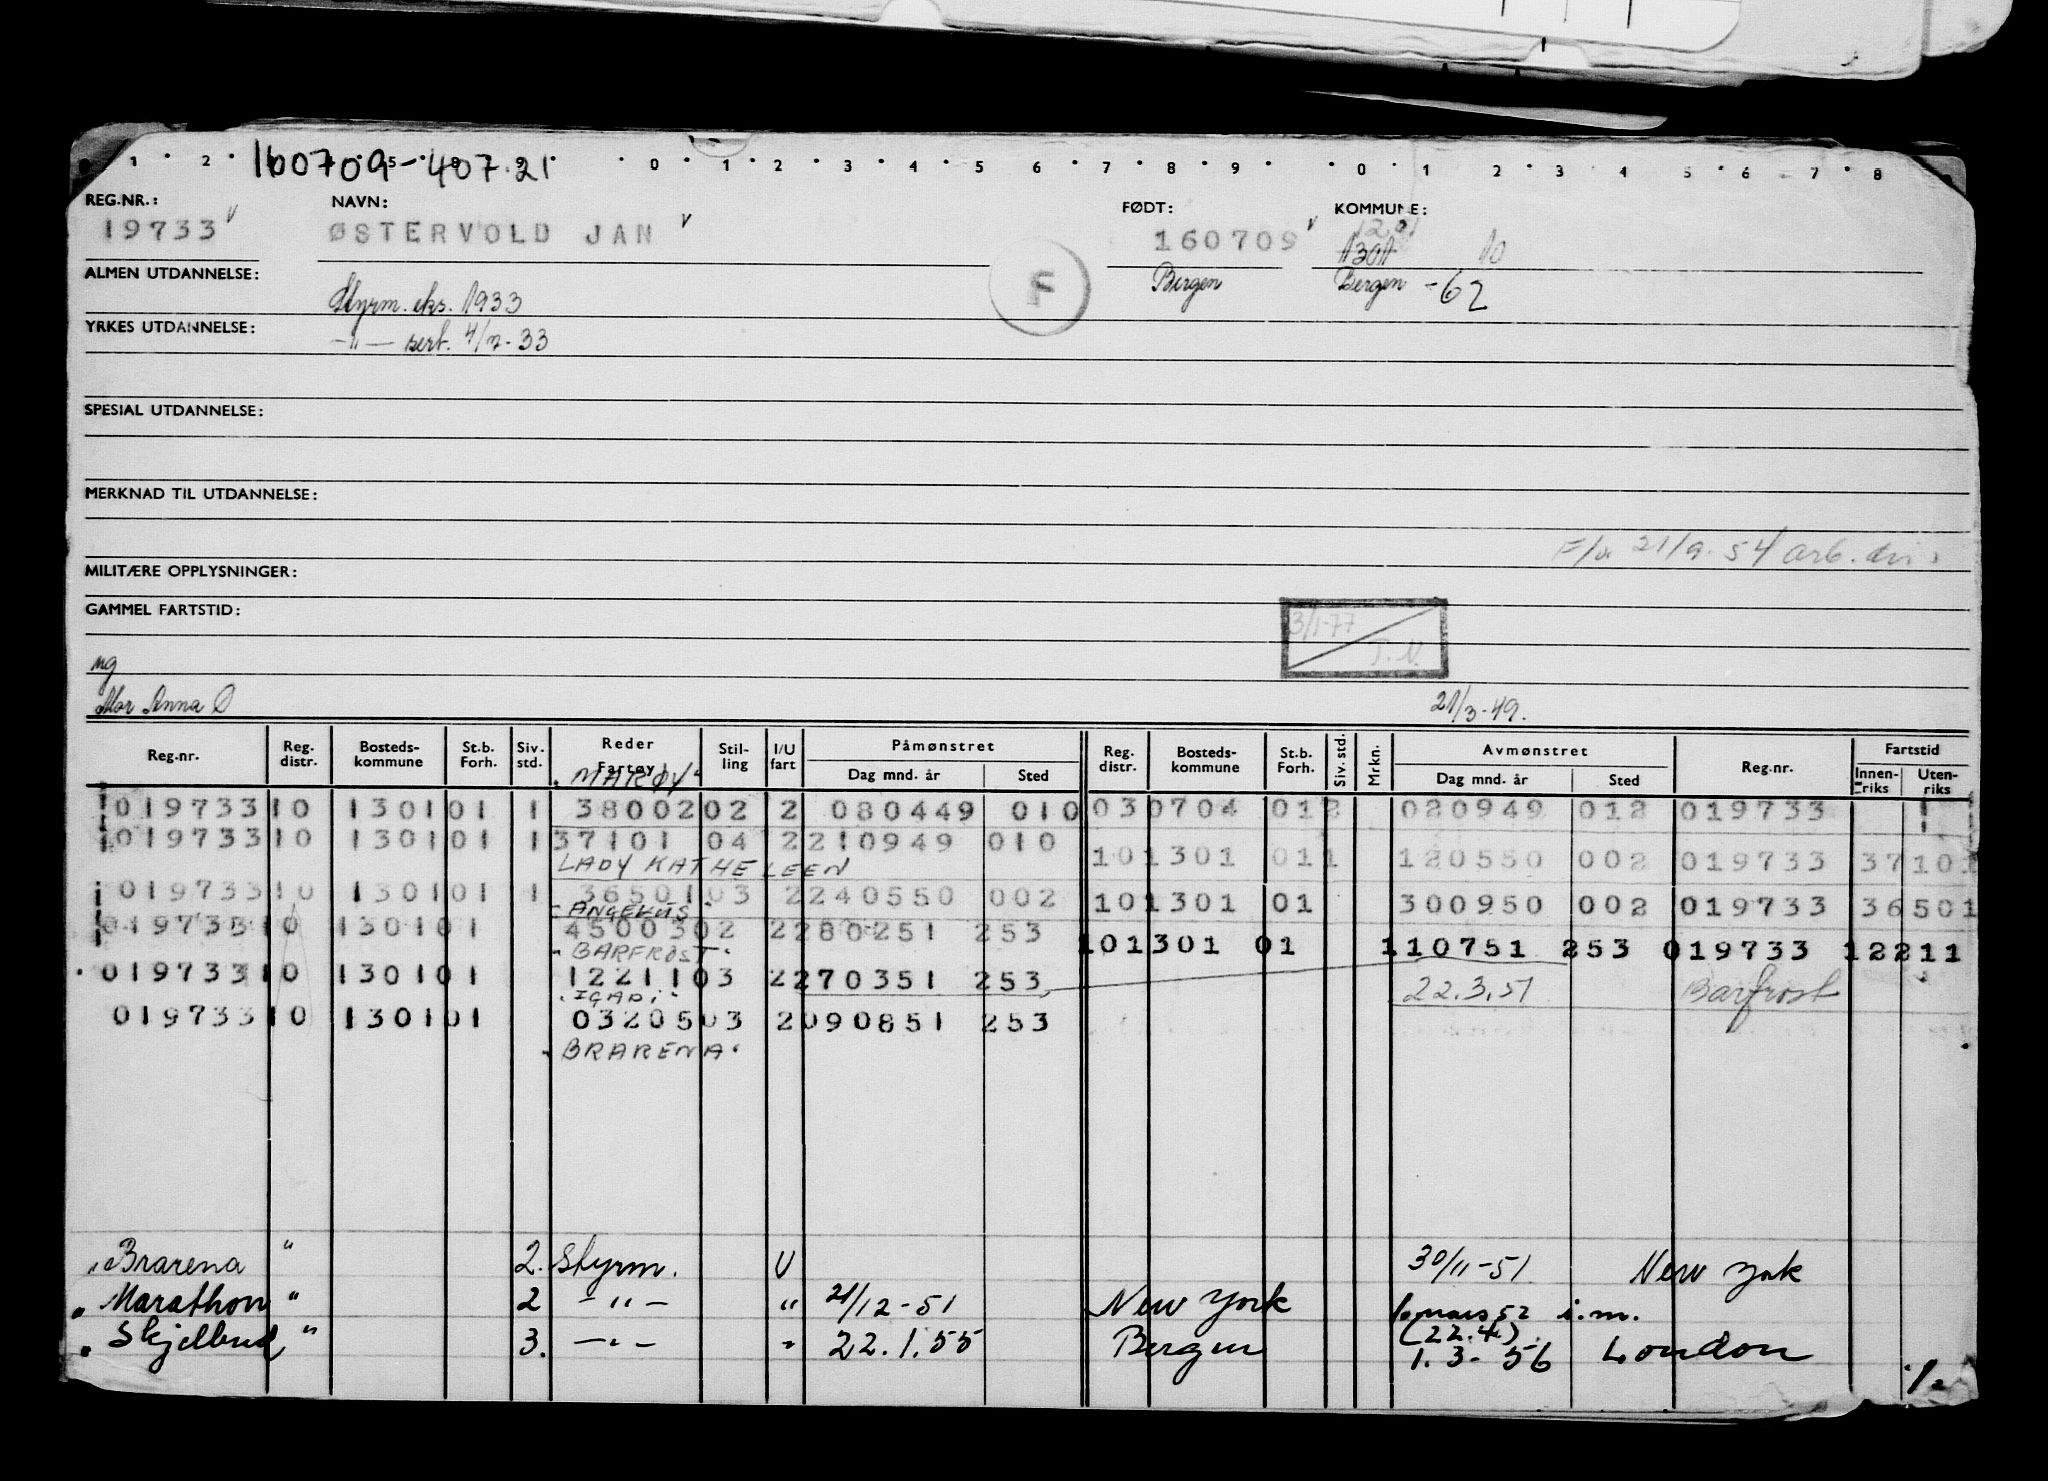 1 2 5 8 9 0 1 2 3 4 5 6 7 8 9 0 1 2 3 4 5 6 7 8
160709-407.21
REG.NR.: NAVN: FØDT: KOMMUNE:
1201
19733 ØSTERVOLD JAN 160709 1301 10
ALMEN UTDANNELSE: F Bergen Bergen -62
Styrm. eks. 1933
YRKES UTDANNELSE: -"- sert. 4/7-33
SPESIAL UTDANNELSE:
MERKNAD TIL UTDANNELSE:
21/9-54 arb.
MILITÆRE OPPLYSNINGER:
GAMMEL FARTSTID:
3/1-77
T.N.
ug
Mor Anna Ø 21/3-49.
Reg.nr. Reg. distr. Bosteds-kommune St.b. Forh. Siv. std. Reder Fartøy Stil-ling I/U fart Påmønstret Dag mnd. år Sted Reg. distr. Bosteds-kommune St.b. Forh. Siv. std. Mrkn. Avmønstret Dag mnd. år Sted Reg.nr. Fartstid Innen-riks Uten-riks
"MARØY"
019733 10 1301 01 1 38002 02 2 080449 010 03 0704 01 2 020949 012 019733
019733 10 1301 01 1 37101 04 2 210949 010
LADY KATHELEEN 10 1301 01 1 120550 002 019733 37101
019733 10 1301 01 1 36501 03 2 240550 002 10 1301 01 300950 002 019733 36501
ANGELUS
019733 10 1301 01 45003 02 2 280251 253
"BARFROST" 10 1301 01 110751 253 019733 12211
019733 10 1301 01 12211 03 2 270351 253 22.3.51 Barfrost
"IGADI"
019733 10 1301 01 03205 03 2 090851 253
"BRARENA"
"Brarena " 2. Styrm. U 30/11-51 New York
" Marathon " 2 -"- " 21/12-51 New York 6 mars 52 i.m.
(22.4)
" Skjelbred " 3. -"- " 22.1.55 Bergen 1.3-56 London